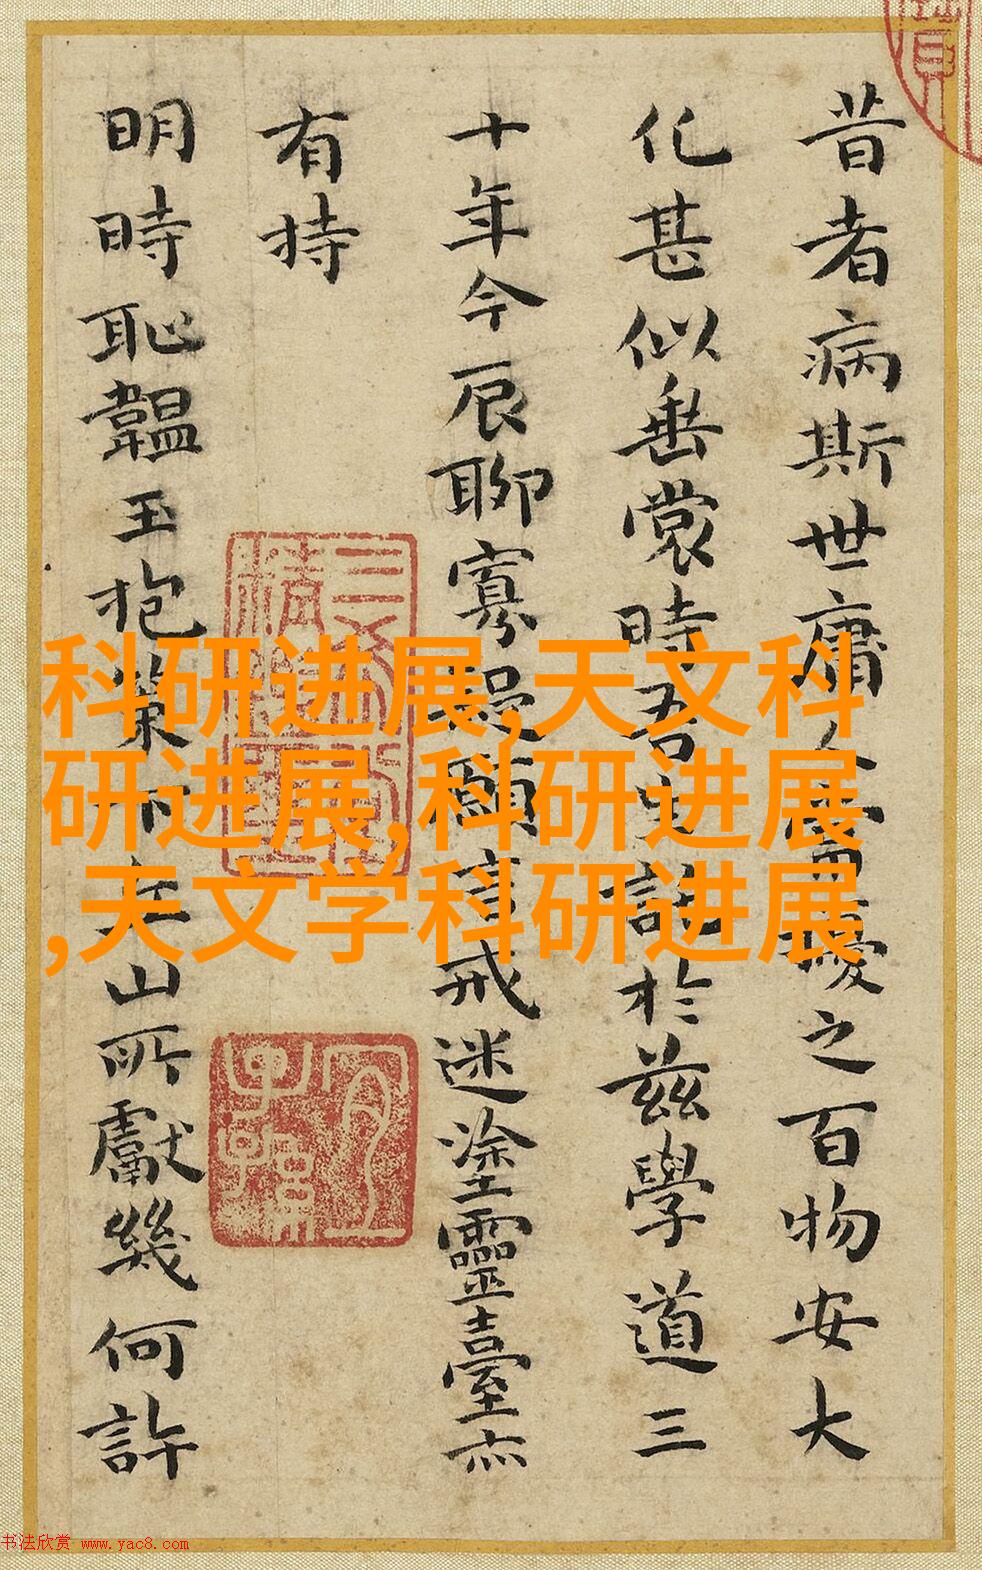 昔者病斯世庸人
之百物安大
化甚似垂裳時吾
於茲學道三
十年今辰聊寡
願言戒迷塗靈臺亦
有持
明時恥韞玉抱策
山所獻幾何許
科研进展,天文科
研进展,科研进展
,天文学科研进展
书法欣赏 www.yac8.com